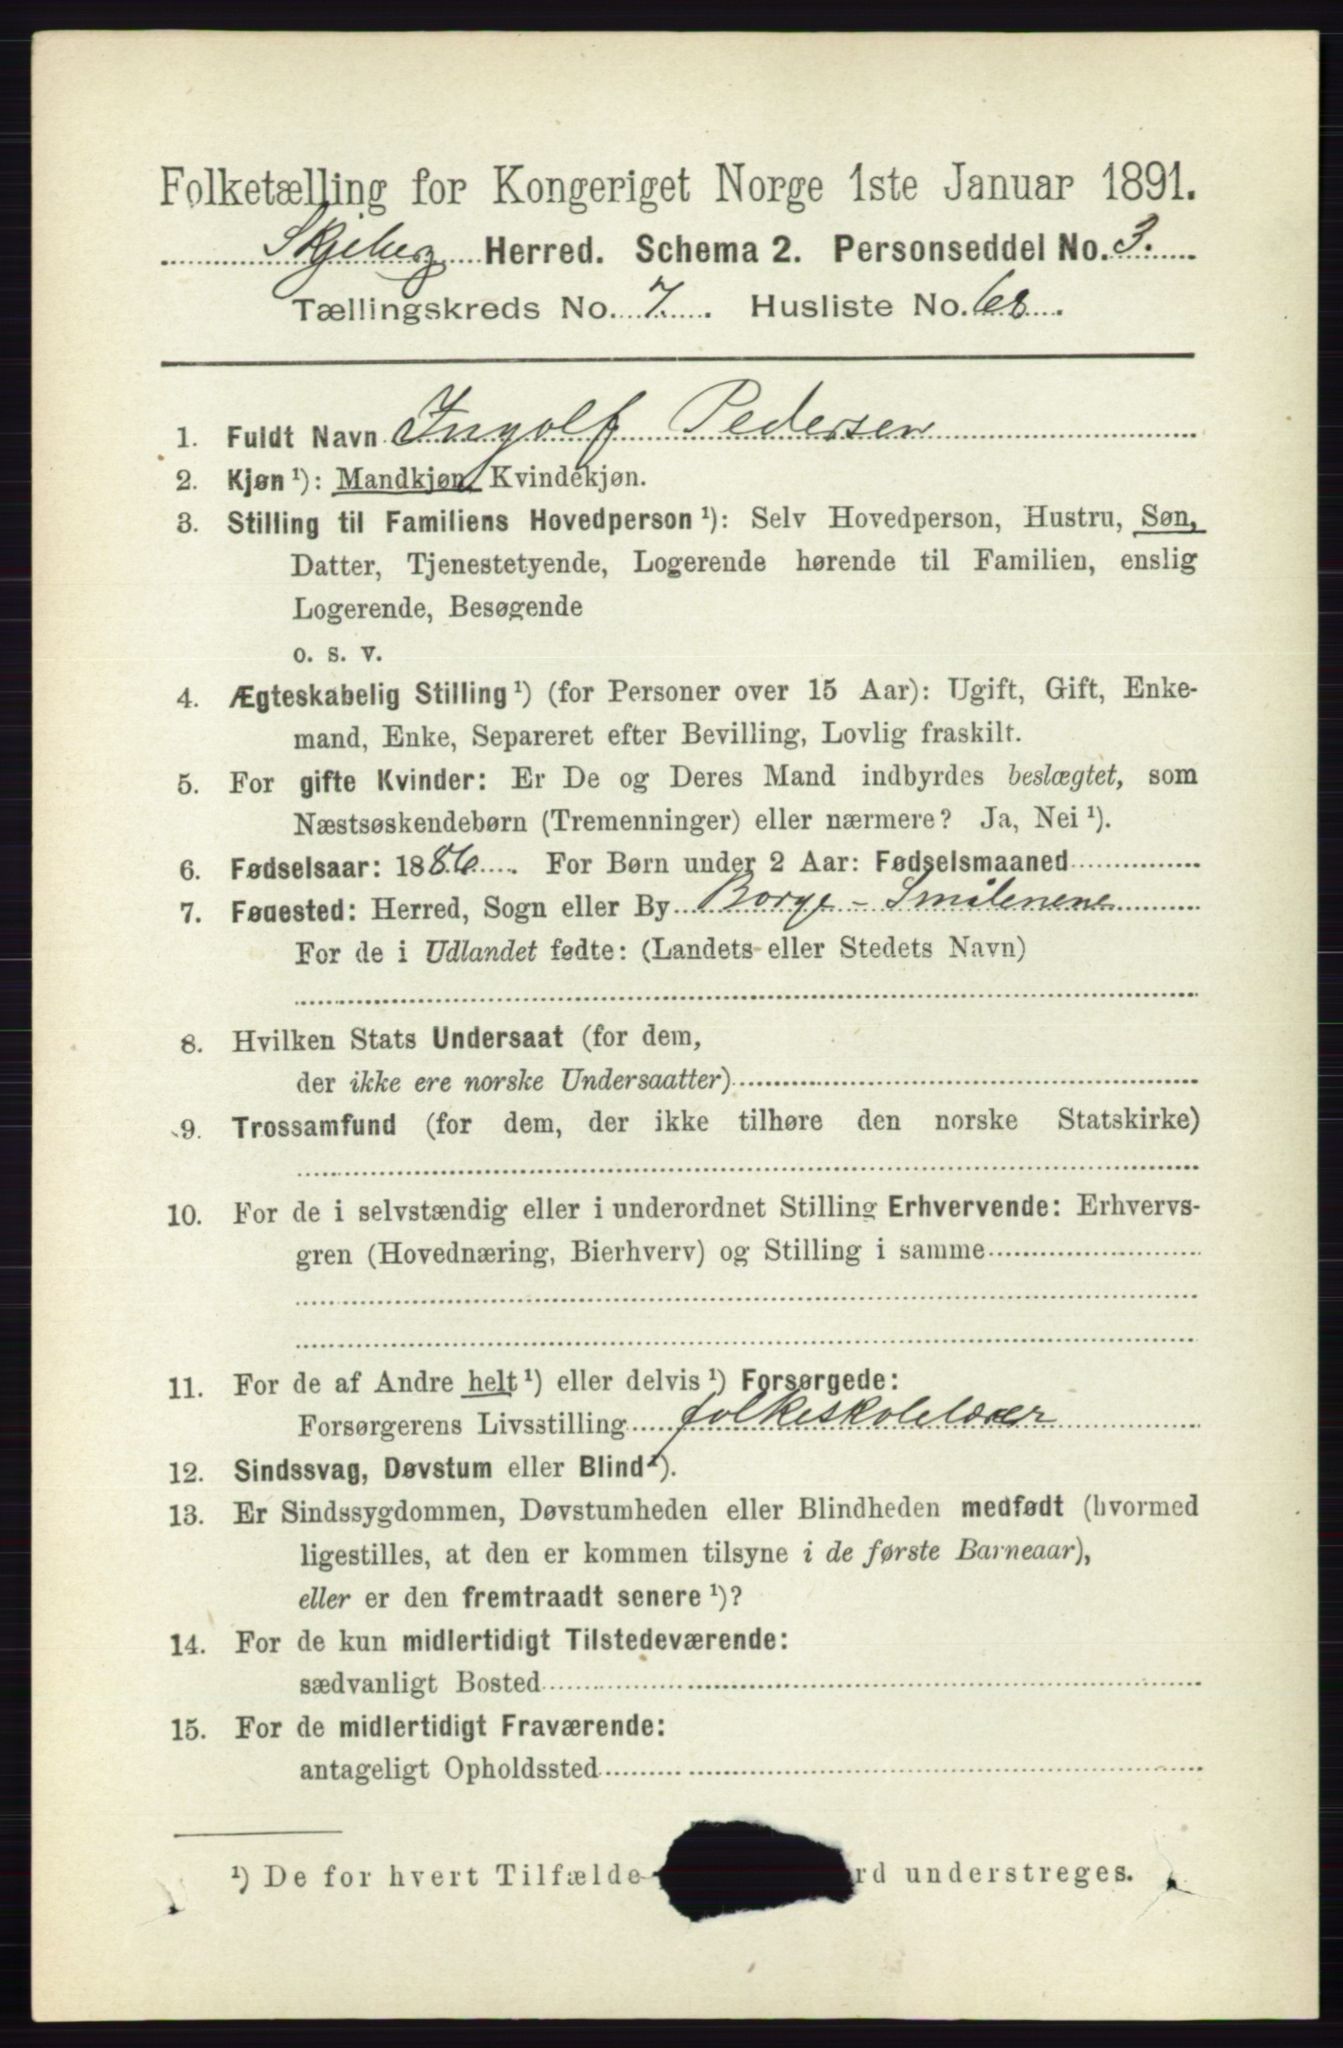 Folketælling for Kongeriget Norge 1ste Januar 1891.
Skjeberg Herred. Schema 2. Personseddel No. 3.
Tællingskreds No. 7. Husliste No. 68.
1. Fuldt Navn Ingolf Pedersen
2. Kjøn ¹): Mandkjøn, Kvindekjøn.
3. Stilling til Familiens Hovedperson ¹): Selv Hovedperson, Hustru, Søn,
Datter, Tjenestetyende, Logerende hørende til Familien, enslig
Logerende, Besøgende
o. s. v.
4. Ægteskabelig Stilling ¹) (for Personer over 15 Aar): Ugift, Gift, Enke-
mand, Enke, Separeret efter Bevilling, Lovlig fraskilt.
5. For gifte Kvinder: Er De og Deres Mand indbyrdes beslægtet, som
Næstsøskendebørn (Tremenninger) eller nærmere? Ja, Nei ¹).
6. Fødselsaar: 1886. For Børn under 2 Aar: Fødselsmaaned
7. Fødested: Herred, Sogn eller By Borge - Smålenene
For de i Udlandet fødte: (Landets eller Stedets Navn)
8. Hvilken Stats Undersaat (for dem,
der ikke ere norske Undersaatter)
9. Trossamfund (for dem, der ikke tilhøre den norske Statskirke)
10. For de i selvstændig eller i underordnet Stilling Erhvervende: Erhvervs-
gren (Hovednæring, Bierhverv) og Stilling i samme
11. For de af Andre helt ¹) eller delvis ¹) Forsørgede:
Forsørgerens Livsstilling folkeskolelærer
12. Sindssvag, Døvstum eller Blind ¹).
13. Er Sindssygdommen, Døvstumheden eller Blindheden medfødt (hvormed
ligestilles, at den er kommen tilsyne i de første Barneaar),
eller er den fremtraadt senere ¹)?
14. For de kun midlertidigt Tilstedeværende:
sædvanligt Bosted
15. For de midlertidigt Fraværende:
antageligt Opholdssted
¹) De for hvert Tilfælde rd understreges.